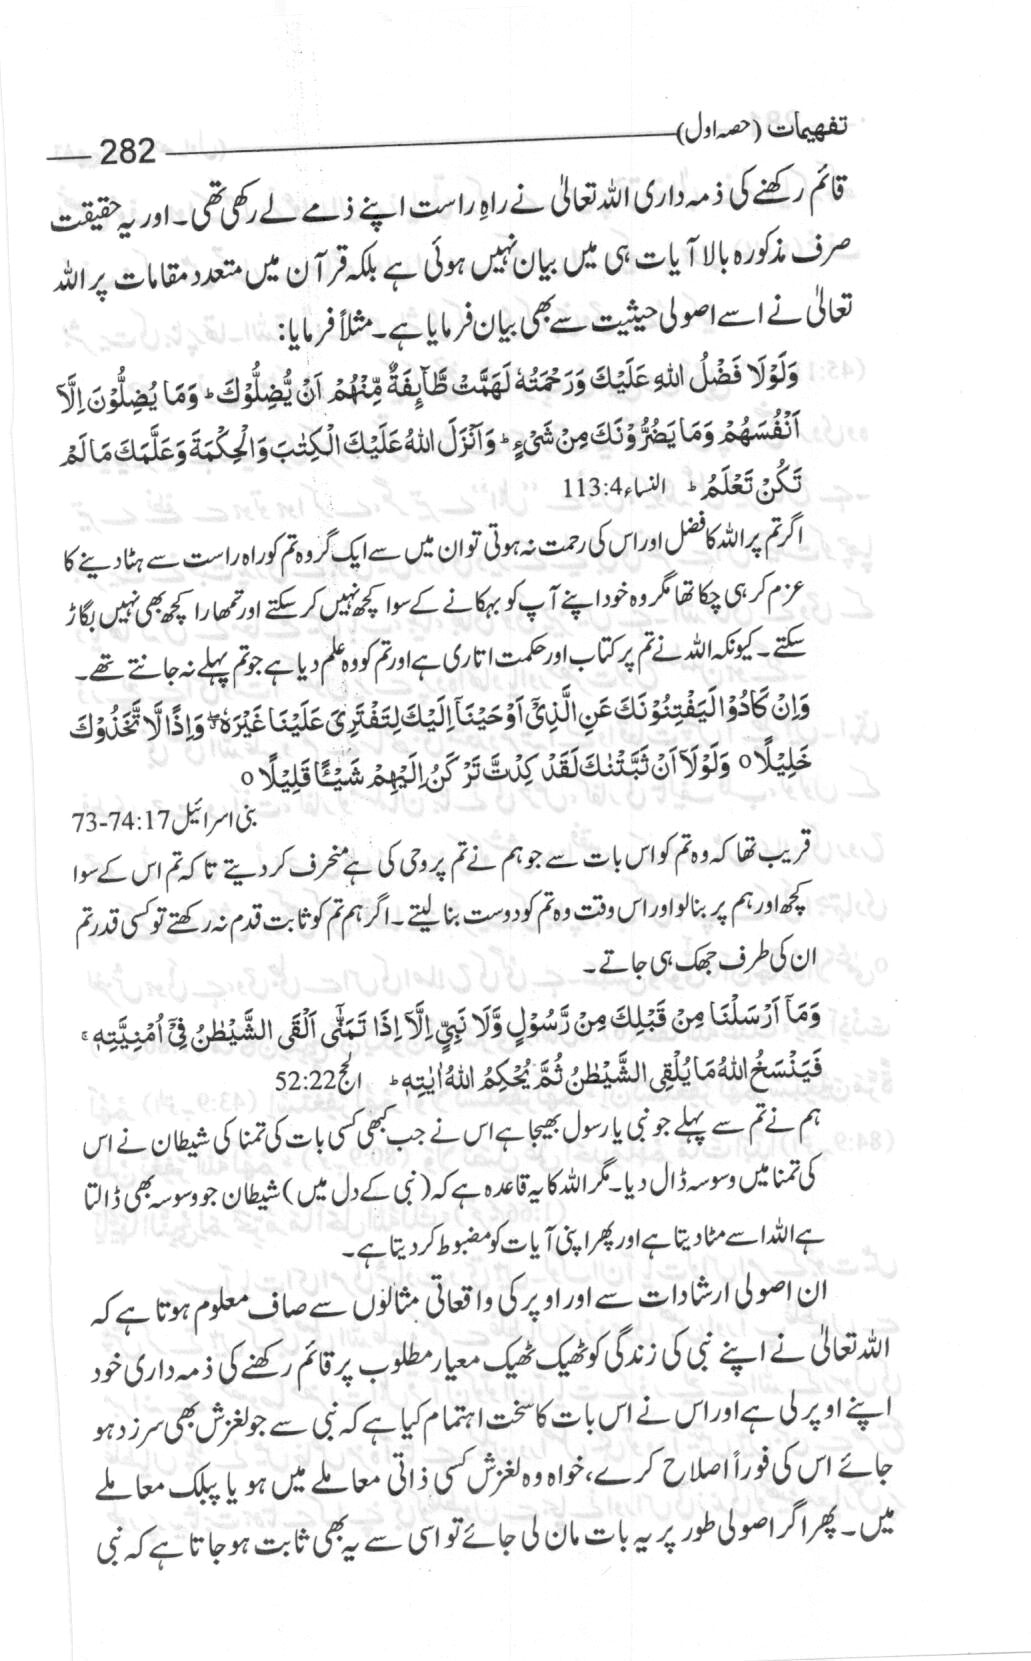 تفہیمات (حصہ اول) 282
قائم رکھنے کی ذمہ داری اللہ تعالیٰ نے راہِ راست اپنے ذمے لے رکھی تھی۔ اور یہ حقیقت
صرف مذکورہ بالا آیات ہی میں بیان نہیں ہوئی ہے بلکہ قرآن میں متعدد مقامات پر اللہ
تعالیٰ نے اسے اصولی حیثیت سے بھی بیان فرمایا ہے۔ مثلاً فرمایا:
وَلَوْلَا فَضْلُ اللهِ عَلَيْكَ وَرَحْمَتُهٗ لَهَمَّتْ طَّآىِٕفَةٌ مِّنْهُمْ اَنْ يُّضِلُّوْكَ ؕ وَمَا يُضِلُّوْنَ اِلَّآ
اَنْفُسَهُمْ وَمَا يَضُرُّوْنَكَ مِنْ شَىْءٍ ؕ وَاَنْزَلَ اللهُ عَلَيْكَ الْكِتٰبَ وَالْحِكْمَةَ وَعَلَّمَكَ مَا لَمْ
تَكُنْ تَعْلَمُ ؕ النساء 113:4
اگر تم پر اللہ کا فضل اور اس کی رحمت نہ ہوتی تو ان میں سے ایک گروہ تم کو راہ راست سے ہٹا دینے کا
عزم کر ہی چکا تھا مگر وہ خود اپنے آپ کو بہکانے کے سوا کچھ نہیں کر سکتے اور تمھارا کچھ بھی نہیں بگاڑ
سکتے۔ کیونکہ اللہ نے تم پر کتاب اور حکمت اتاری ہے اور تم کو وہ علم دیا ہے جو تم پہلے نہ جانتے تھے۔
وَاِنْ كَادُوْا لَيَفْتِنُوْنَكَ عَنِ الَّذِىْٓ اَوْحَيْنَآ اِلَيْكَ لِتَفْتَرِىَ عَلَيْنَا غَيْرَهٗ ۖ وَاِذًا لَّا تَّخَذُوْكَ
خَلِيْلًا ○ وَلَوْلَآ اَنْ ثَبَّتْنٰكَ لَقَدْ كِدْتَّ تَرْكَنُ اِلَيْهِمْ شَيْـًٔا قَلِيْلًا ○
بنی اسرائیل 17:74-73
قریب تھا کہ وہ تم کو اس بات سے جو ہم نے تم پر وحی کی ہے منحرف کر دیتے تاکہ تم اس کے سوا
کچھ اور ہم پر بنا لو اور اس وقت وہ تم کو دوست بنا لیتے۔ اگر ہم تم کو ثابت قدم نہ رکھتے تو کسی قدر تم
ان کی طرف جھک ہی جاتے۔
وَمَآ اَرْسَلْنَا مِنْ قَبْلِكَ مِنْ رَّسُوْلٍ وَّلَا نَبِىٍّ اِلَّآ اِذَا تَمَنّٰٓى اَلْقَى الشَّيْطٰنُ فِىْٓ اُمْنِيَّتِهٖ ۚ
فَيَنْسَخُ اللهُ مَا يُلْقِى الشَّيْطٰنُ ثُمَّ يُحْكِمُ اللهُ اٰيٰتِهٖ ؕ الحج 52:22
ہم نے تم سے پہلے جو نبی یا رسول بھیجا ہے اس نے جب کبھی کسی بات کی تمنا کی شیطان نے اس
کی تمنا میں وسوسہ ڈال دیا۔ مگر اللہ کا یہ قاعدہ ہے کہ (نبی کے دل میں) شیطان جو وسوسہ بھی ڈالتا
ہے اللہ اسے مٹا دیتا ہے اور پھر اپنی آیات کو مضبوط کر دیتا ہے۔
ان اصولی ارشادات سے اور اوپر کی واقعاتی مثالوں سے صاف معلوم ہوتا ہے کہ
اللہ تعالیٰ نے اپنے نبی کی زندگی کو ٹھیک ٹھیک معیار مطلوب پر قائم رکھنے کی ذمہ داری خود
اپنے اوپر لی ہے اور اس نے اس بات کا سخت اہتمام کیا ہے کہ نبی سے جو لغزش بھی سرزد ہو
جائے اس کی فوراً اصلاح کرے، خواہ وہ لغزش کسی ذاتی معاملے میں ہو یا پبلک معاملے
میں۔ پھر اگر اصولی طور پر یہ بات مان لی جائے تو اسی سے یہ بھی ثابت ہو جاتا ہے کہ نبی